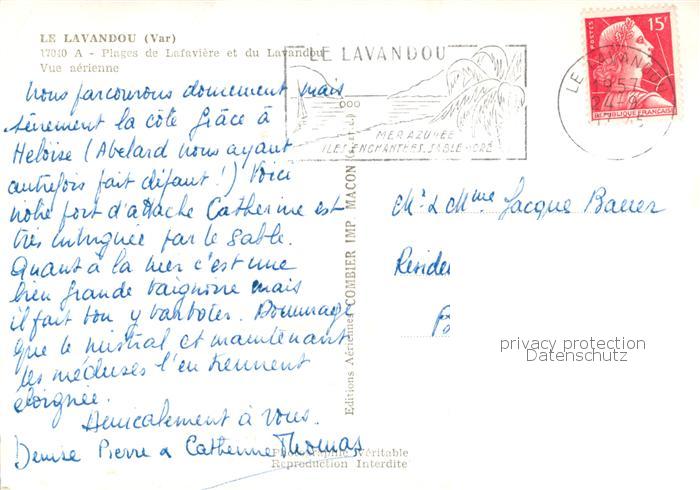 LE LAVANDOU (Var)
17040 A - Plages de Lafavière et du Lavandou
Vue aérienne
LE LAVANDOU
MER AZURÉE
ILES ENCHANTÉES. SABLE DORÉ
POSTES
15F
REPUBLIQUE FRANÇAISE
LE LAVANDOU
1957
24-9
Nous parcourons doucement mais
sûrement la côte grâce à
Héloïse (Abelard nous ayant
autrefois fait défaut!) Voici
notre port d'attache Catherine est
très intriguée par le sable.
Quant à la mer c'est une
bien grande baignoire mais
il fait bon y barboter. Dommage
que le mistral et maintenant
les méduses l'en tiennent
éloignée.
Amicalement à vous.
Denise Pierre & Catherine Thomas
Editions Aériennes COMBIER IMP. MACON
Mr & Mme Jacque Bauer
Résider
privacy protection
Datenschutz
Photographie Véritable
Reproduction Interdite